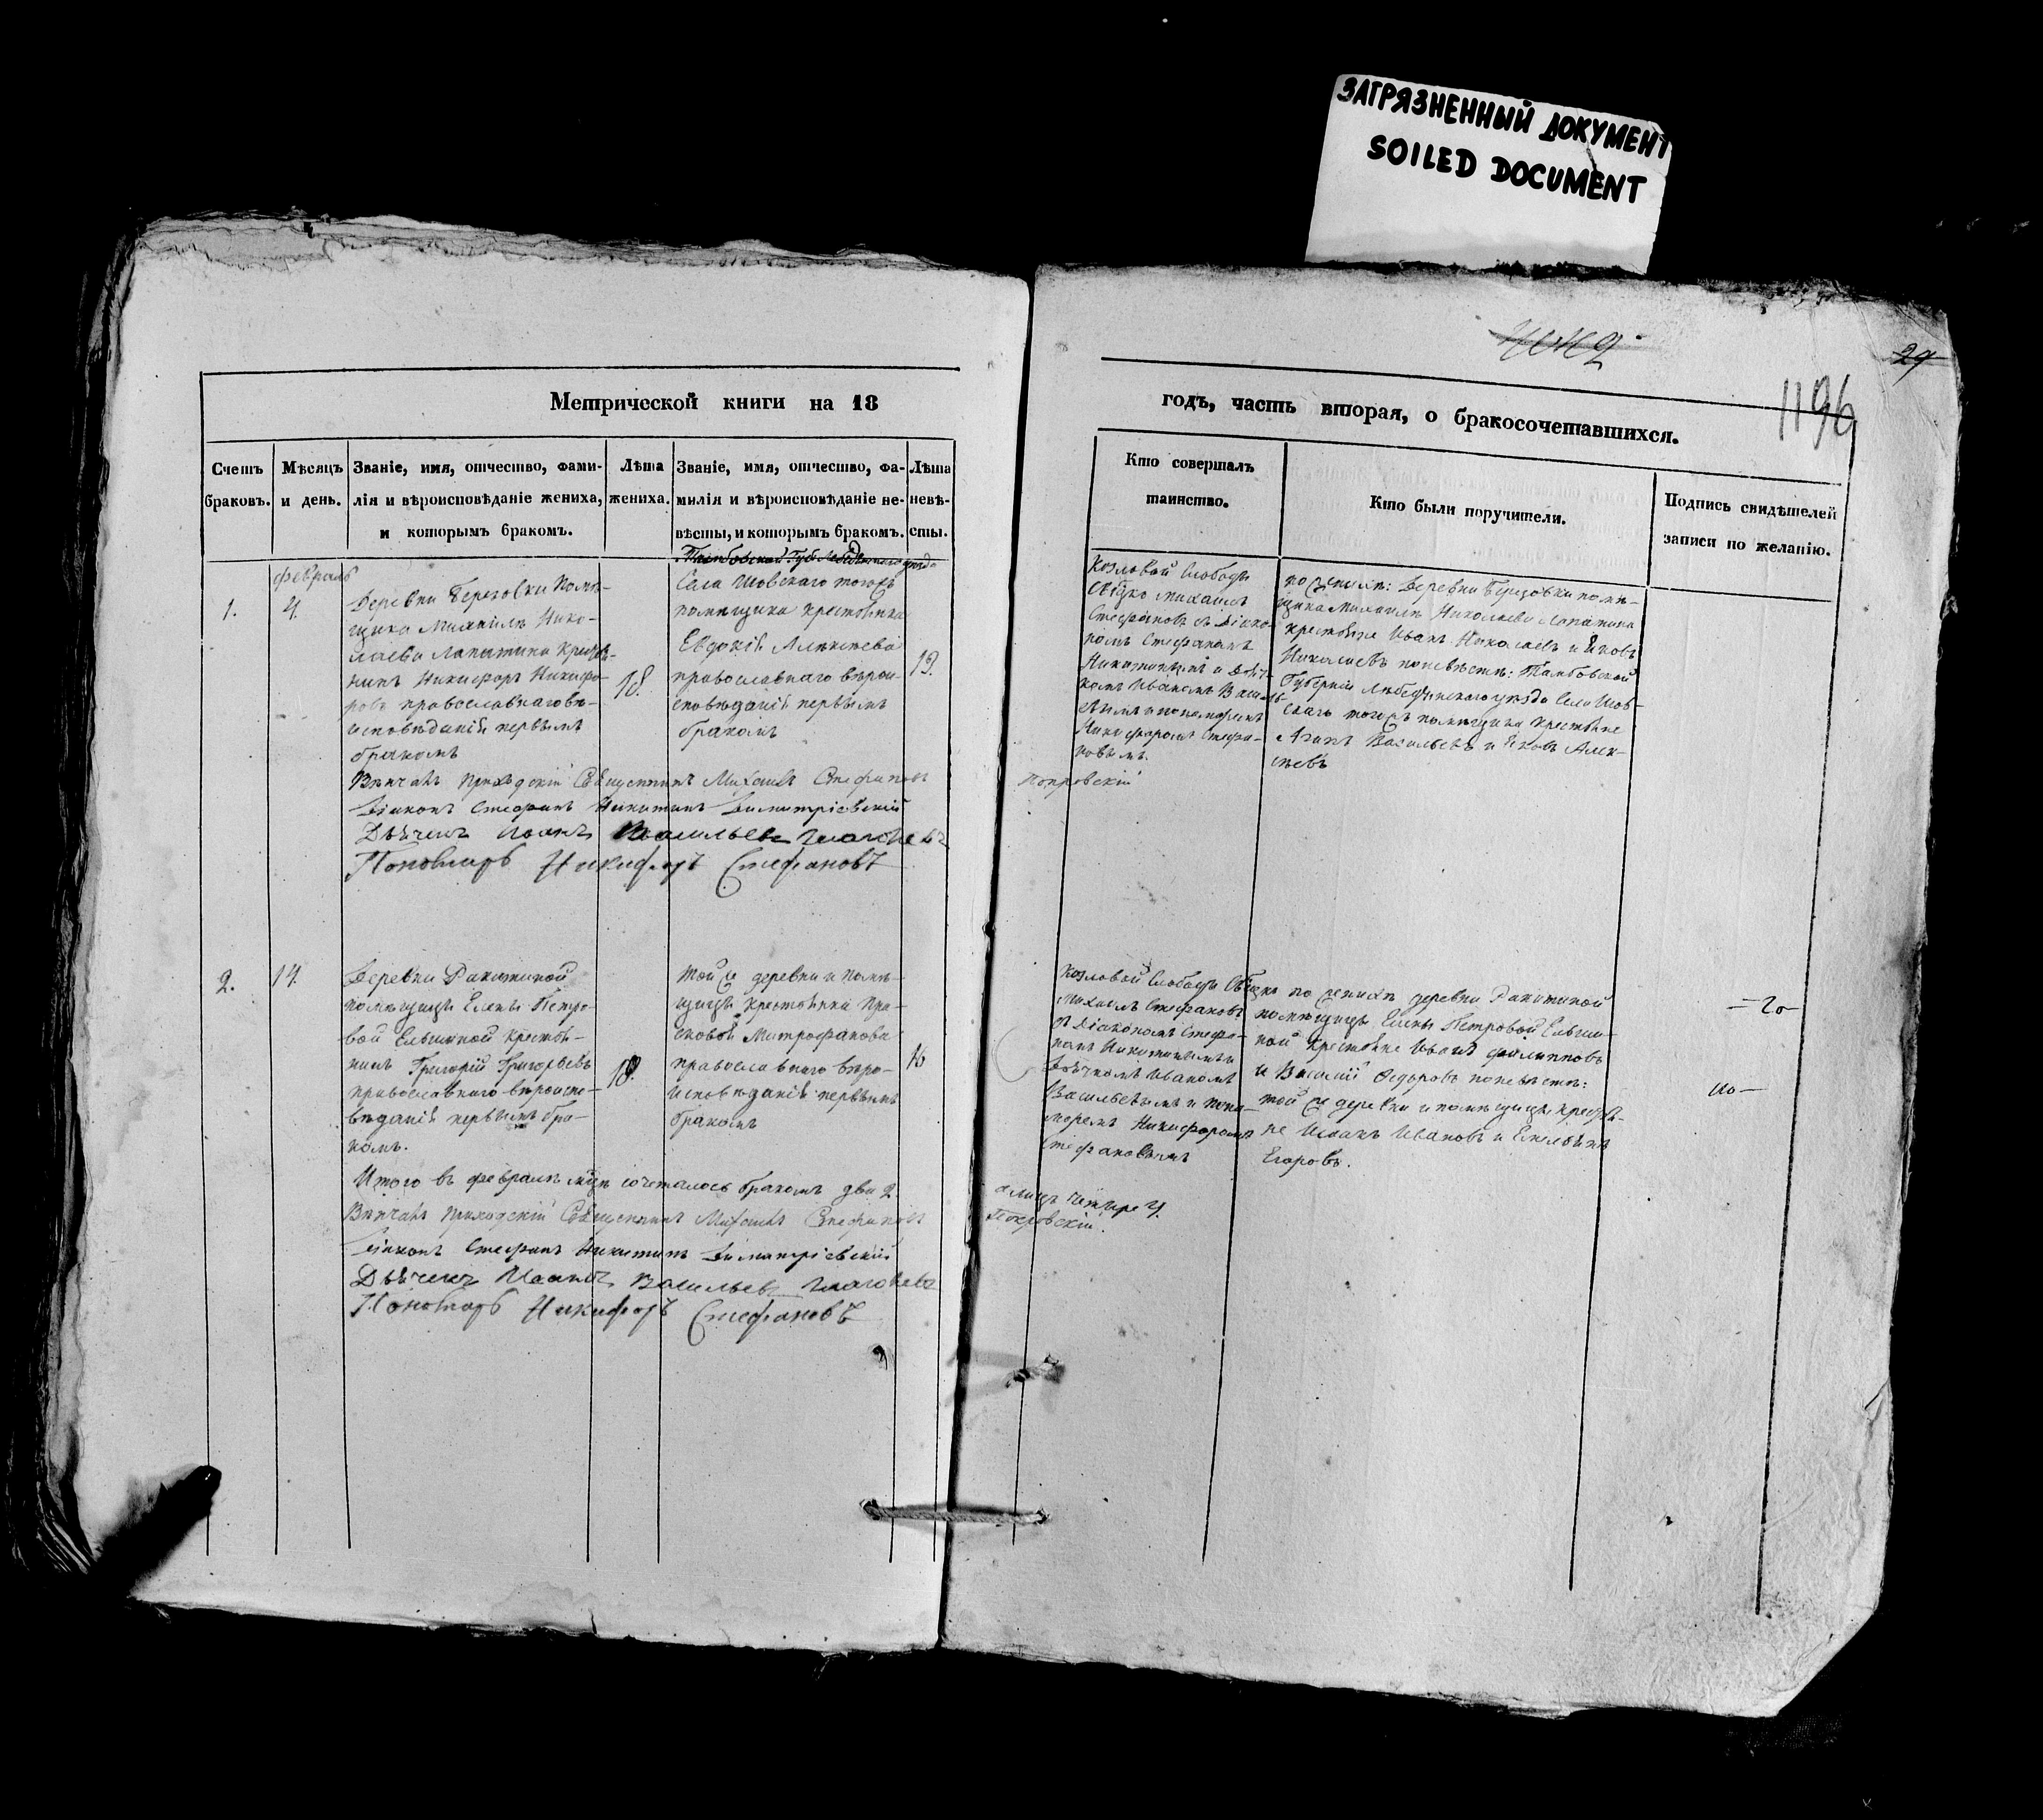 ЗАГРЯЗНЕННЫЙ ДОКУМЕНТ
SOILED DOCUMENT
29
1196
Метрической книги на 18
годъ, часть вторая, о бракосочетавшихся.
Счетъ браковъ.
Мѣсяцъ и день.
Званіе, имя, отчество, фами-
лія и вѣроисповѣданіе жениха,
и которымъ бракомъ.
Лѣта
жениха.
Званіе, имя, отчество, фа-
милія и вѣроисповѣданіе не-
вѣсты, и которымъ бракомъ.
Лѣта
невѣ-
сты.
Кто совершалъ
таинство.
Кто были поручители.
Подпись свидѣтелей
записи по желанію.
1.
февраль
4.
Деревни Березовки помѣ-
щика Михаила Нико-
лаева Лапатина крестья-
нинъ Никифоръ Никифо-
ровъ православнаго вѣ-
исповѣданія первымъ
бракомъ
18.
Тамбовской Губ Лебедянскаго уѣзда
Села Шовскаго тогожъ
помѣщика крестьянка
Евдокія Алексѣева
православнаго вѣрои-
сповѣданія первымъ
бракомъ
19.
Козловой Слободы
Свящко Михаилъ
Стефановъ съ діако-
номъ Стефаномъ
Никитинымъ и дьяч-
комъ Иваномъ Василь-
евымъ и пономаремъ
Никифоромъ Стефа-
новымъ.
по женихѣ: деревни Березовки помѣ-
щика Михаила Николаева Лапатина
крестьяне Иванъ Николаевъ и Яковъ
Николаевъ по невѣстѣ: Тамбовской
Губерніи Лебедянскаго уѣзда Села Шов-
скаго тогожъ помѣщика крестьяне
Васильевъ и Яковъ Алек-
сѣевъ
Вѣнчалъ Приходскій Священникъ Михаилъ Стефановъ Покровскій
Діаконъ Стефанъ Никитинъ Димитріевскій
Дьячекъ Иоаннъ Васильевъ Глаголевъ
Пономарь Никифоръ Стефановъ
2.
14.
Деревни Ракитиной
помѣщицы Елены Петро-
вой Ельшиной крестья-
нинъ Григорій Григорьевъ
православнаго вѣроиспо-
вѣданія первымъ бра-
комъ.
18.
той же деревни и помѣ-
щицы крестьянка Пра-
сковья Митрофанова
православнаго вѣро-
исповѣданія первымъ
бракомъ
16
Козловой Слободы Свящко
Михаилъ Стефановъ
съ діакономъ Стефа-
номъ Никитинымъ и
дьячкомъ Иваномъ
Васильевымъ и поно-
маремъ Никифоромъ
Стефановымъ
по женихѣ деревни Ракитиной
помѣщицы Елены Петровой Ельши-
ной крестьяне Иванъ Филипповъ
и Василій Федоровъ по невѣстѣ:
той же деревни и помѣщицы крестья-
не Иванъ Ивановъ и Емельянъ
Егоровъ.
Итого въ февралѣ мцѣ сочеталось бракомъ два 2. а лицъ четыре 4.
Вѣнчалъ Приходскій Священникъ Михаилъ Стефановъ Покровскій.
Діаконъ Стефанъ Никитинъ Димитріевскій
Дьячекъ Иоаннъ Васильевъ Глаголевъ
Пономарь Никифоръ Стефановъ